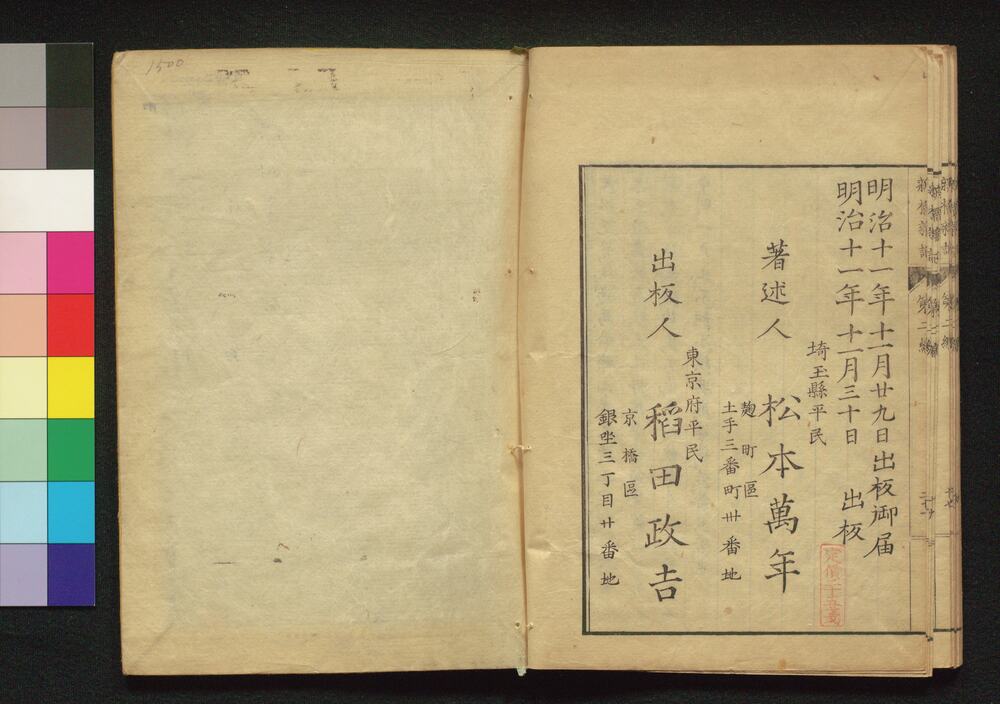 明治十一年十一月廿九日出板御届
明治十一年十一月三十日 出板
埼玉縣平民
著述人 松本萬年
麹町區
土手三番町卅番地
東京府平民
出板人 稻田政吉
京橋區
銀坐三丁目廿番地
1500